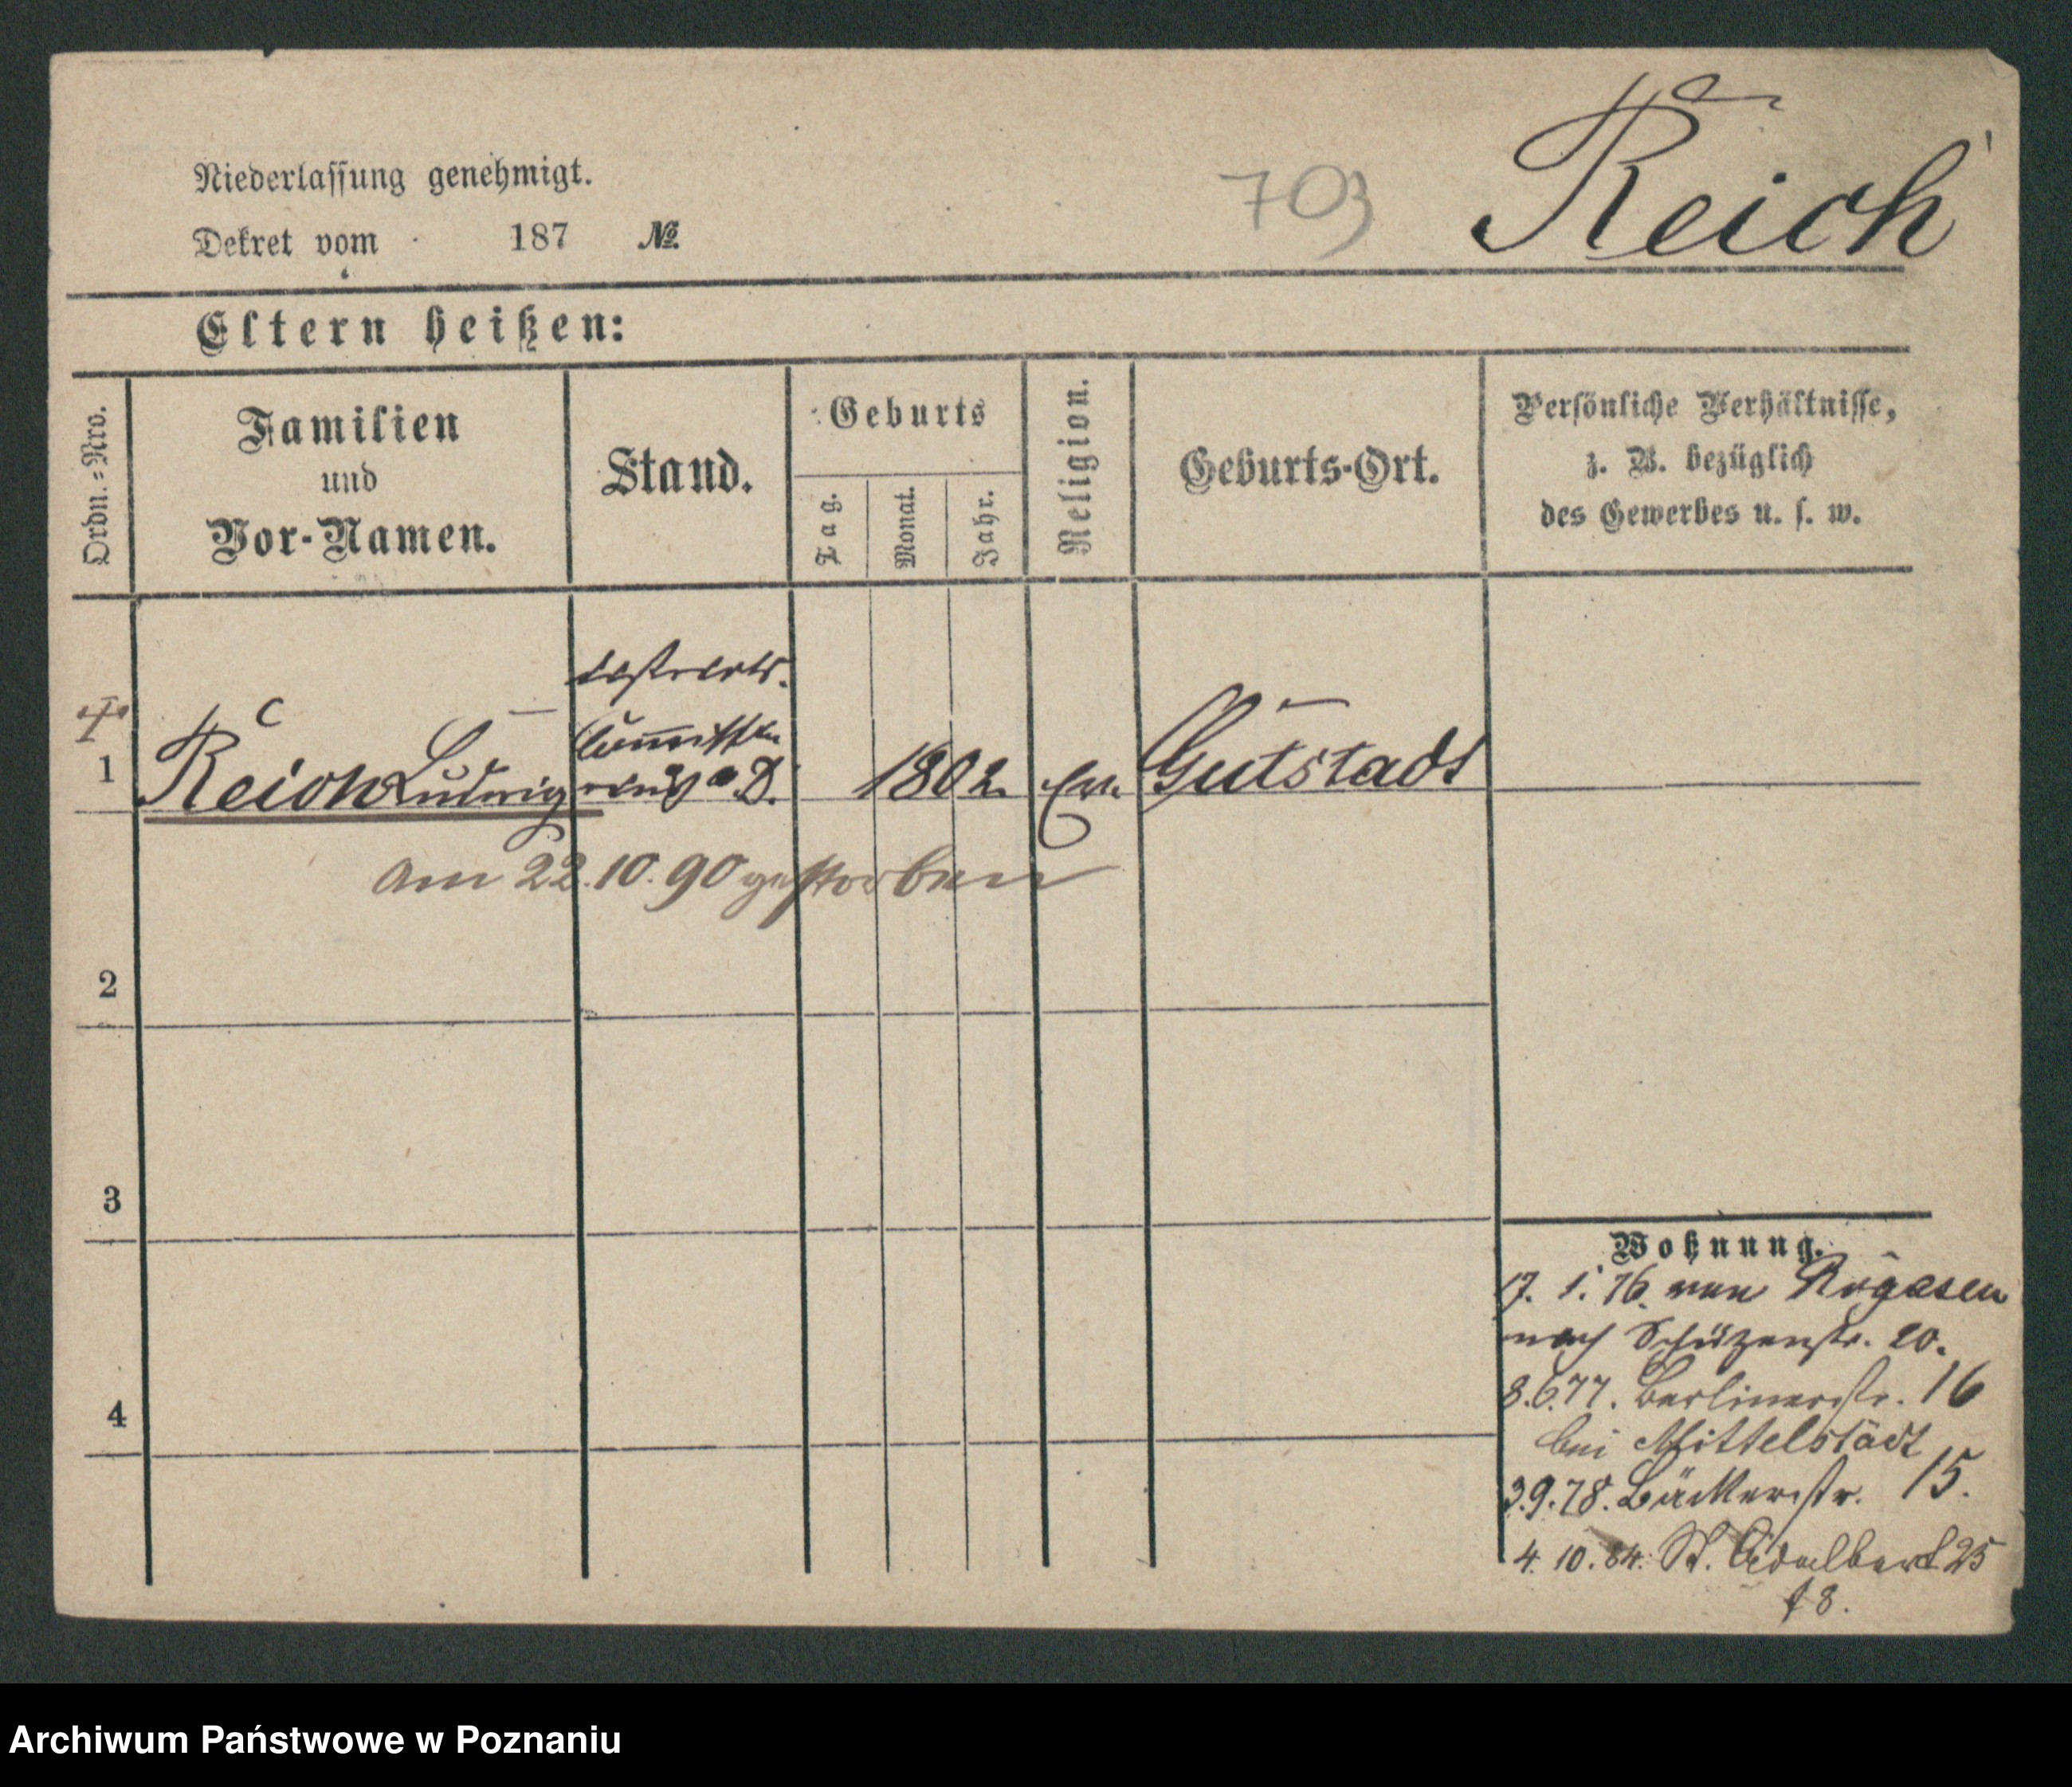 Niederlassung genehmigt.
Dekret vom 187 №
703 Reich
Eltern heißen:
Ordn.=Nro.
Familien
und
Vor-Namen.
Stand.
Geburts
Tag.
Monat.
Jahr.
Religion.
Geburts-Ort.
Persönliche Verhältnisse,
z. B. bezüglich
des Gewerbes u. s. w.
1 Reich Ludwig
Commissa
rius a D.
1802
Ev.
Gutstadt
am 22.10.90 gestorben
2
3
4
Wohnung.
17. 1. 76. von Rogasen
nach Schützenstr. 20.
8.6.77. Berlinerstr. 16
bei Mittelstädt
3.9.78. Bäckerstr. 15.
4. 10. 84. St. Adalbert 25
Archiwum Państwowe w Poznaniu